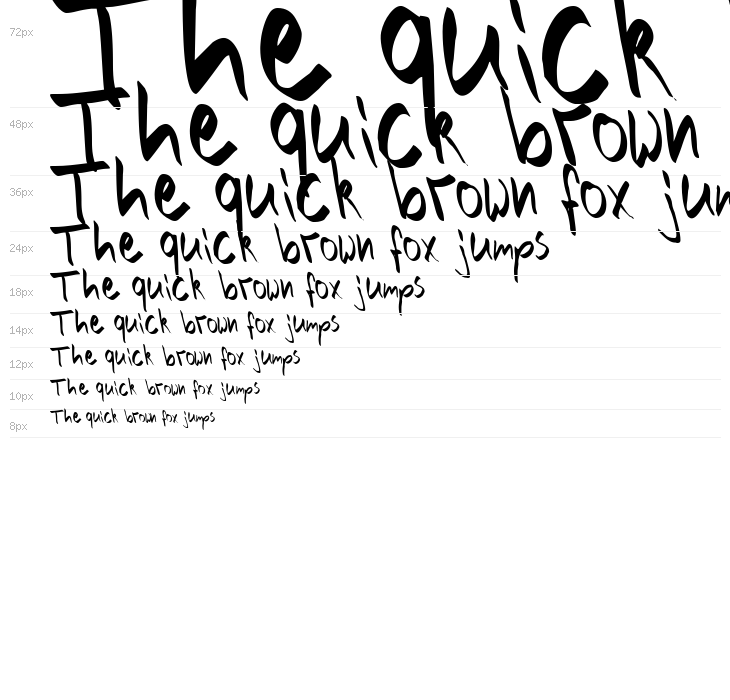 72px The quick
48px The quick brown
36px The quick brown fox jum
24px The quick brown fox jumps
18px The quick brown fox jumps
14px The quick brown fox jumps
12px The quick brown fox jumps
10px The quick brown fox jumps
8px The quick brown fox jumps